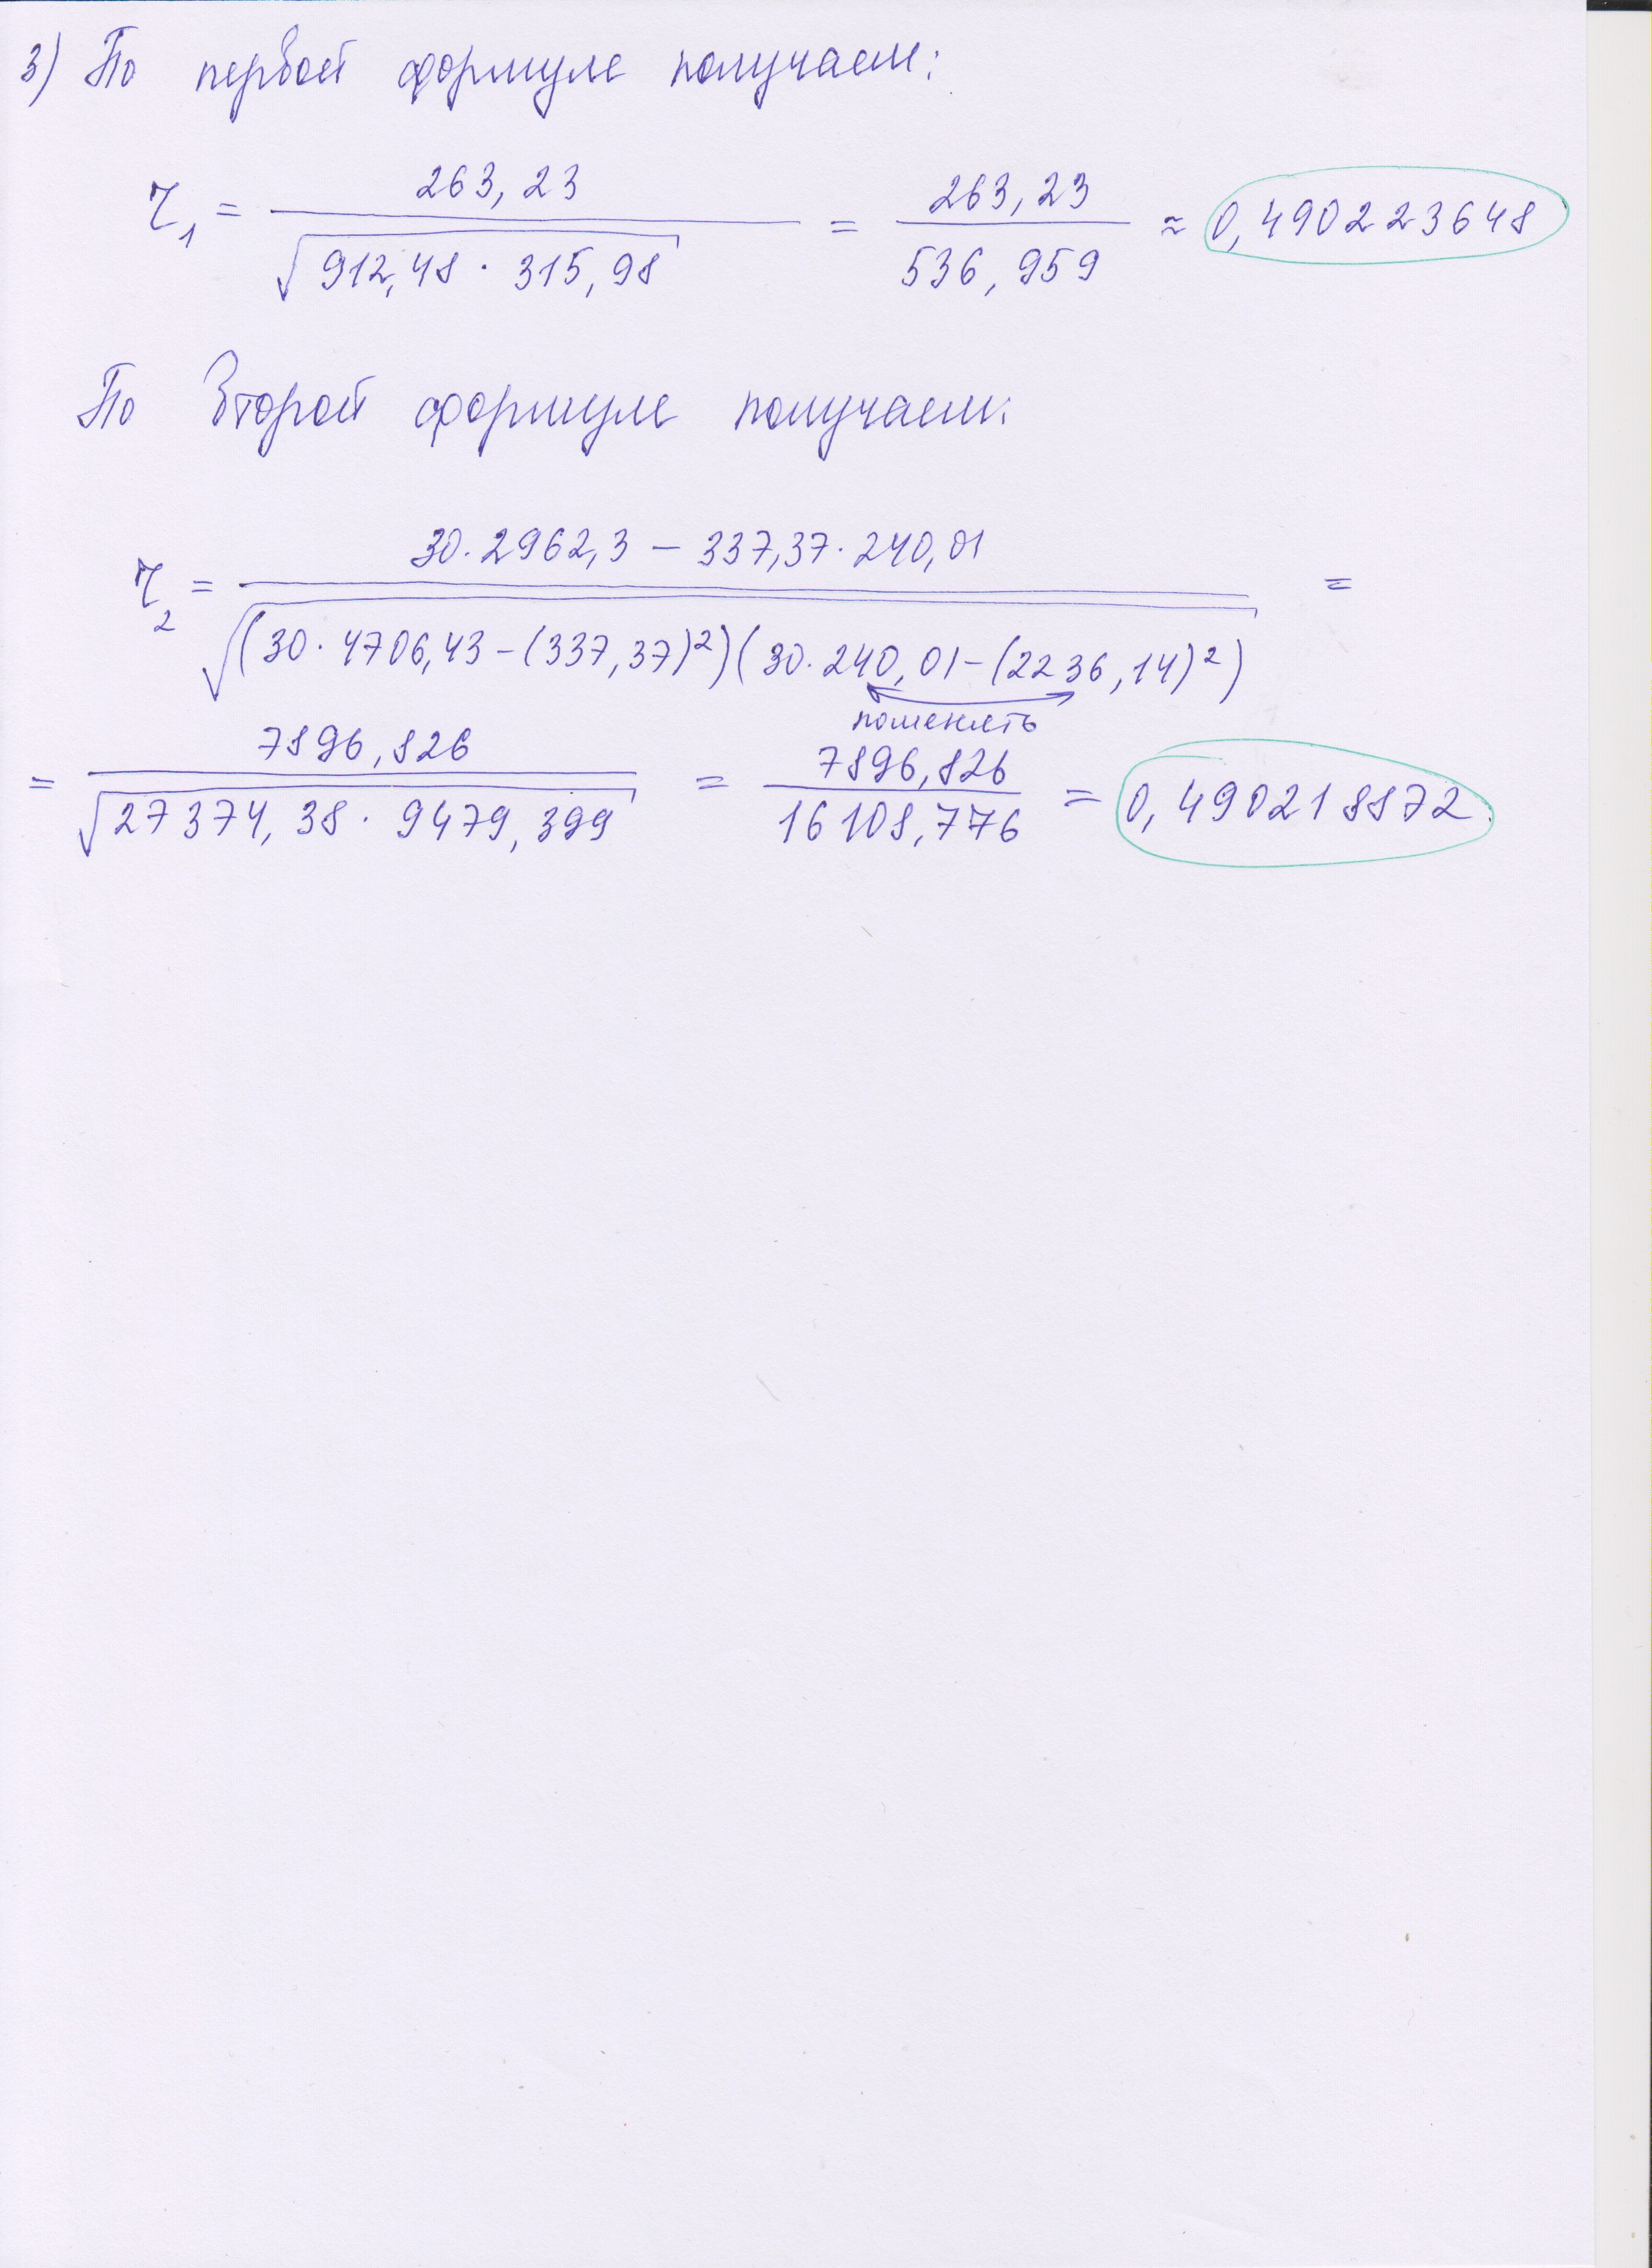 3) По первой формуле получаем:
r₁ = 263,23 / √(912,48 · 315,98) = 263,23 / 536,959 ≈ 0,490223648
По второй формуле получаем:
r₂ = (30·2962,3 − 337,37·240,01) / √((30·4706,43−(337,37)²)(30·240,01−(2236,14)²)) =
поменять
= 7896,826 / √(27374,38 · 9479,399) = 7896,826 / 16108,776 = 0,490218872